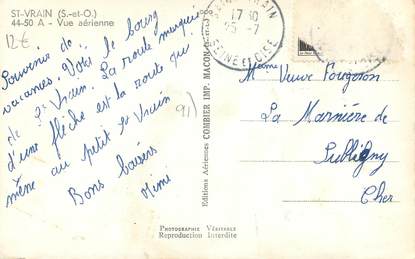 ST-VRAIN (S.-et-O.)
44-50 A - Vue aérienne
12€
Souvenir de
vacances. Voici le bourg
de St Vrain. La route marquée
d'une flèche est la route qui
mène au petit St Vrain
91)
Bons baisers
Mimi
Editions Aériennes COMBIER IMP. MACON
PHOTOGRAPHIE VÉRITABLE
Reproduction Interdite
17 30
SEINE ET OISE
Madame Veuve Fougeron
La Marnière de
Subligny
Cher